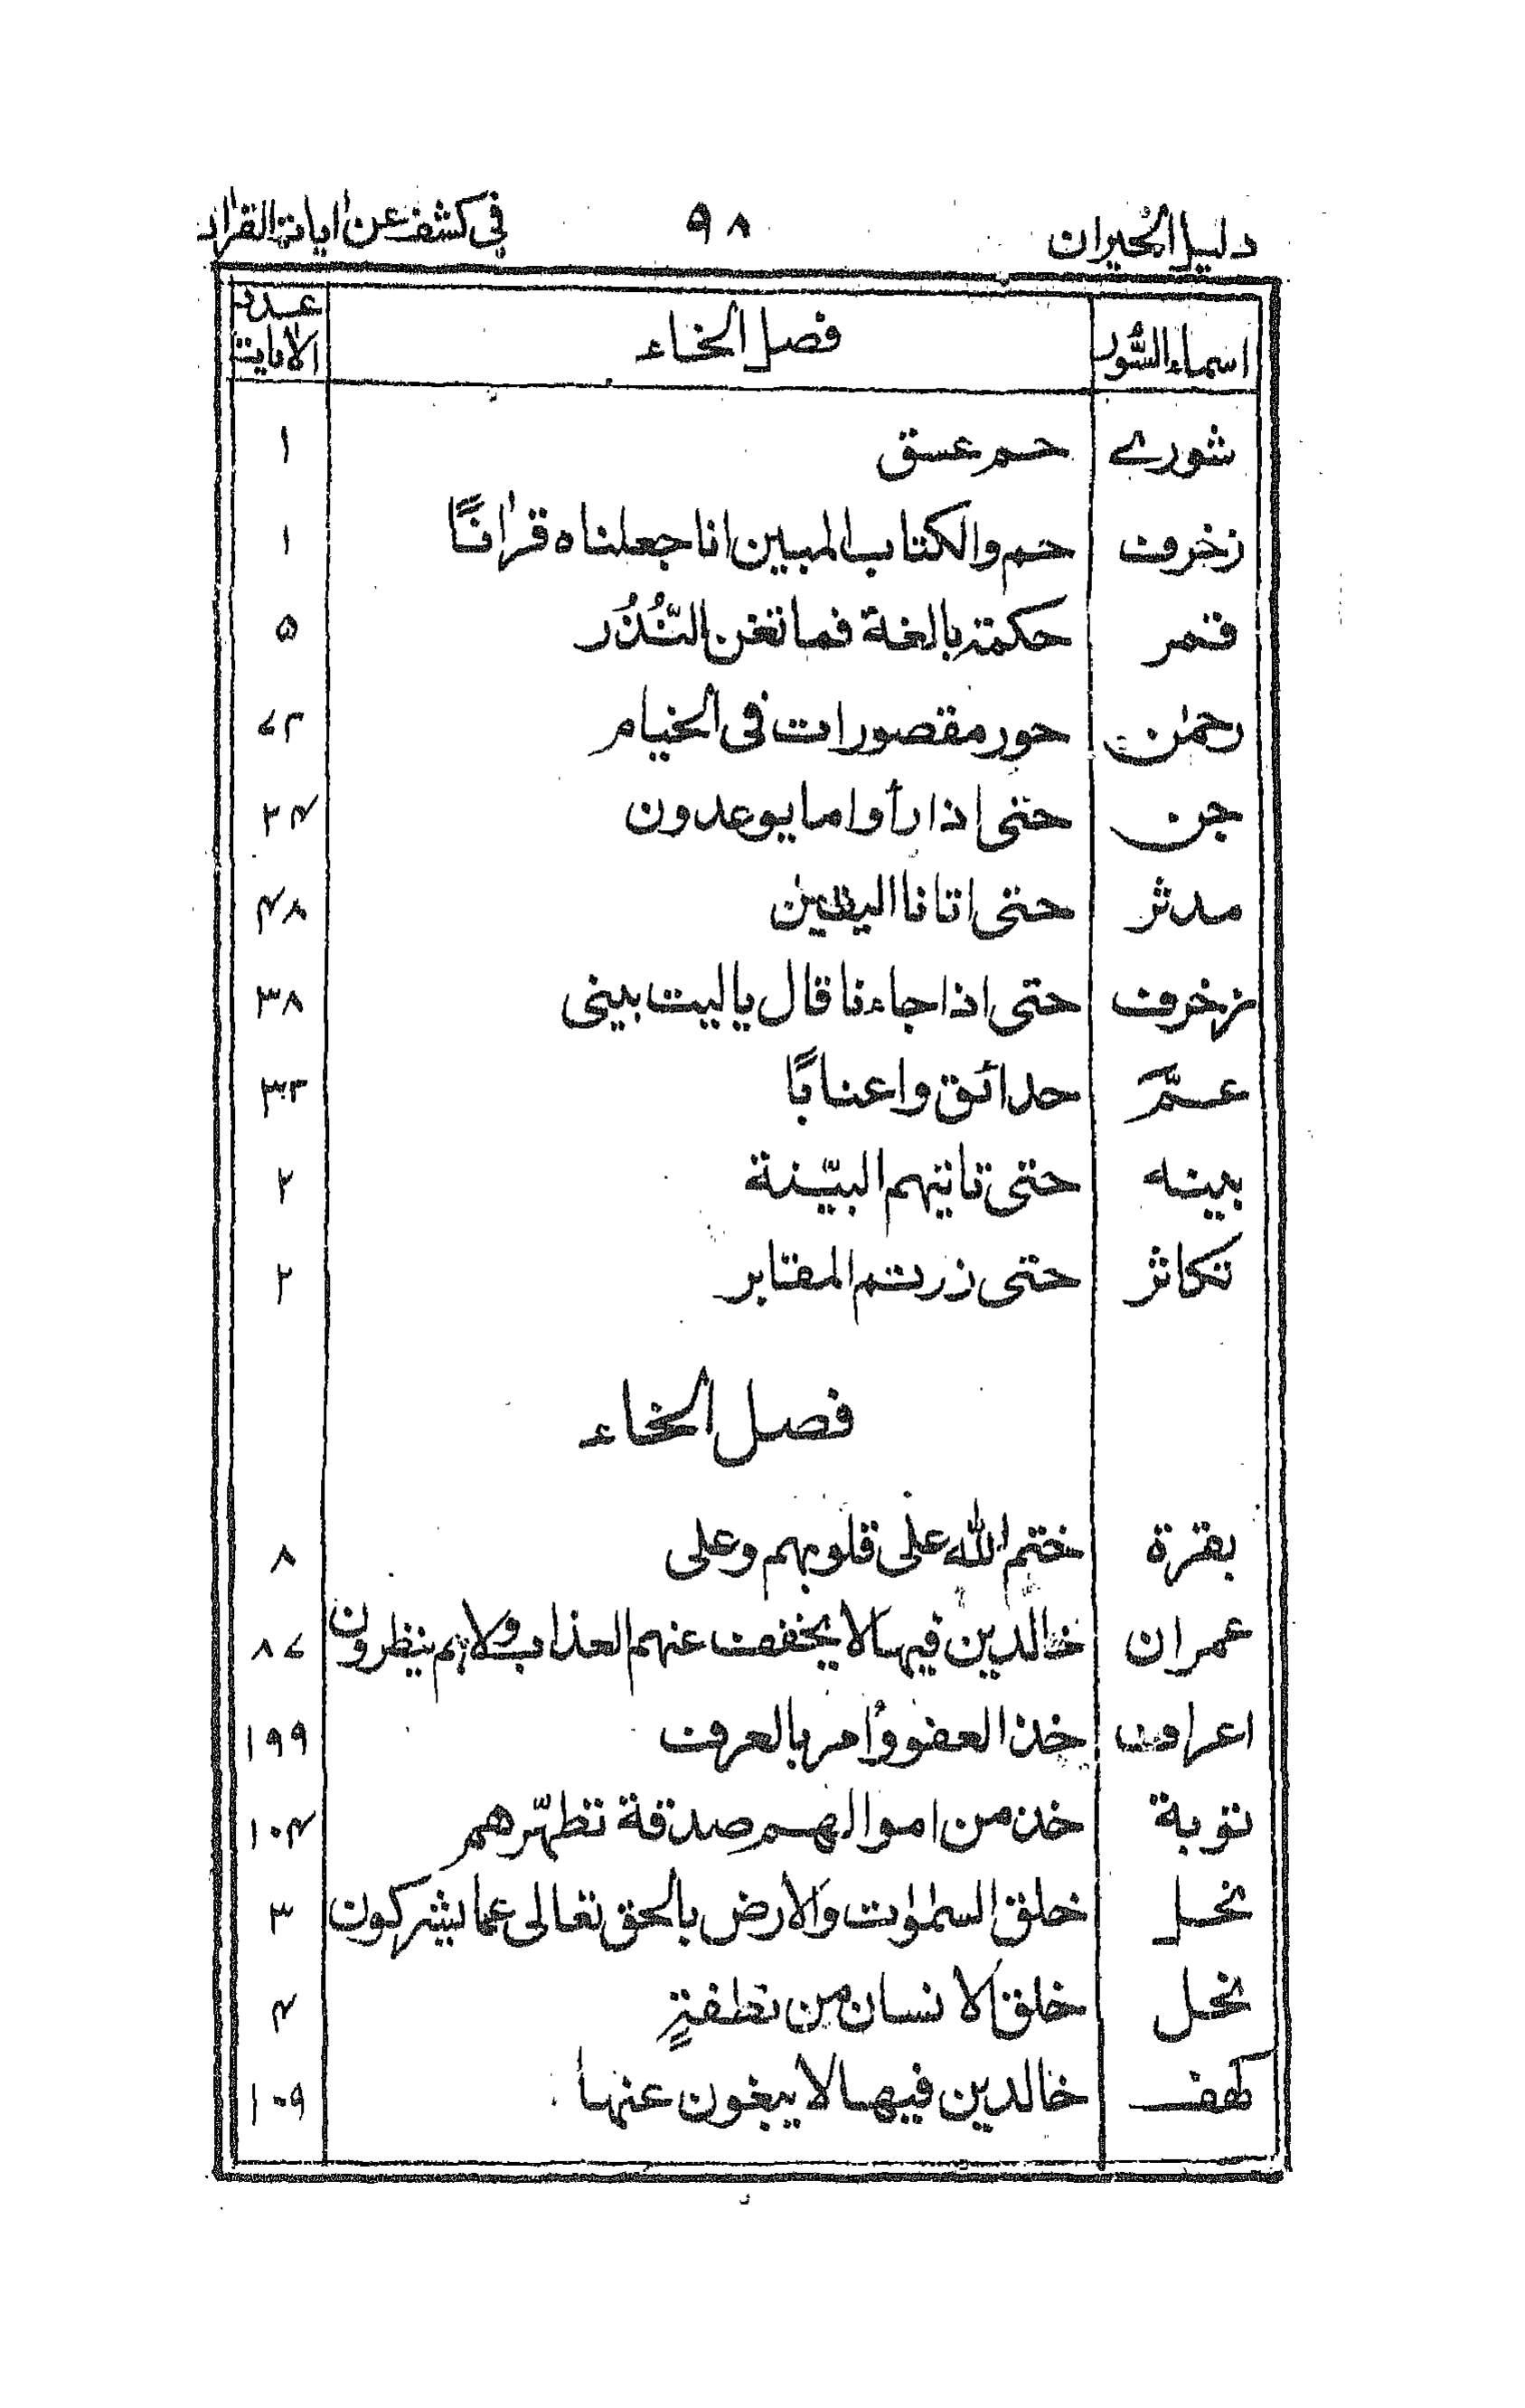 دليل الحيران ٩٨ في كشف عن اٰيات القراٰن
اسماء السُّور فصل الخاء عدد الاٰيات
شورے حم عسق ١
زخرف حم والكتاب المبين انا جعلناه قراٰنًا ١
قمر حكمة بالغة فما تغن النُّذُر ۵
رحمٰن حور مقصورات فى الخيام ٧٢
جن حتى اذا رأوا ما يوعدون ٢۴
مدثر حتى اتانا اليقين ۴٨
زخرف حتى اذا جاءنا قال ياليت بينى ٣٨
عمَّ حدائق واعنابًا ٣٢
بينه حتى تاتيهم البيّنة ٢
تكاثر حتى زرتم المقابر ٢
فصل الخاء
بقرة ختم الله على قلوبهم وعلى ٨
عمران خالدين فيها لا يخفف عنهم العذاب ولا هم ينظرون ٨٧
اعراف خذ العفو وأمر بالعرف ١٩٩
توبة خذ من اموالهم صدقة تطهّرهم ١٠۴
نحل خلق السمٰوٰت والارض بالحق تعالى عما يشركون ٣
نحل خلق الانسان من نطفةٍ ۴
كهف خالدين فيها لا يبغون عنها ١٠٩